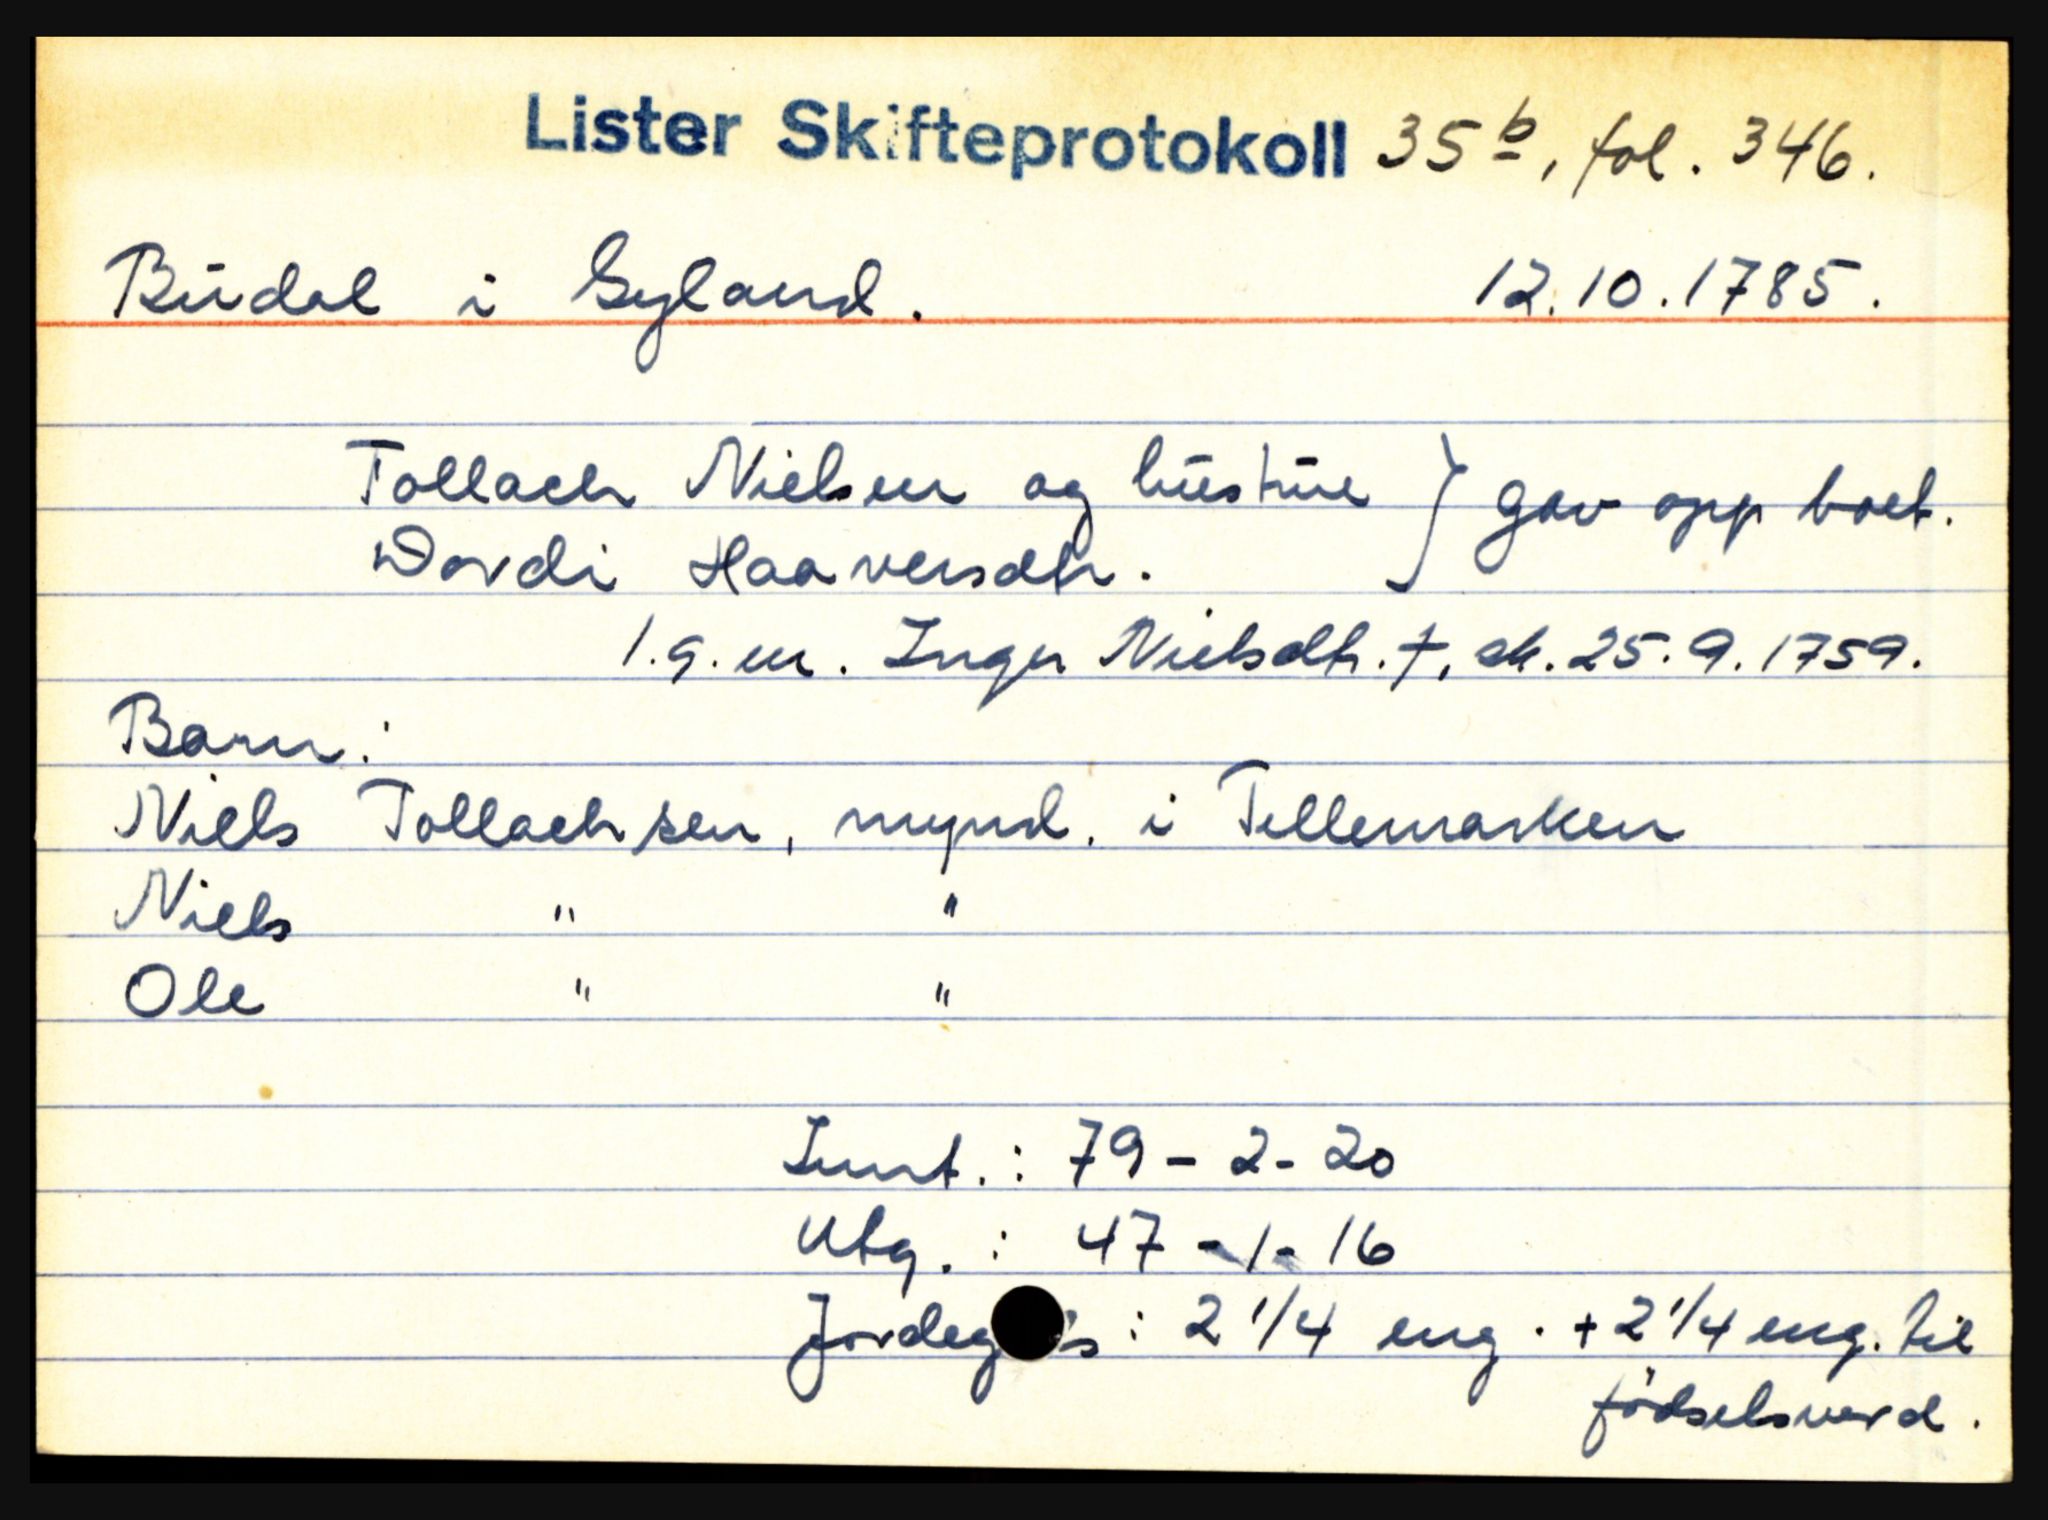 Lister Skifteprotokoll 35b, fol. 346.
Búdal i Gyland. 12.10.1785.
Tollach Nielsen og hústrúe } gav opp boet.
Dordi Haaversdtr.
1.g.m. Inger Nielsdtr. †, sk. 25.9.1759.
Barn:
Niels Tollachsen, mynd. i Tellemarken
Niels " "
Ole " "
Innt.: 79-2-20
Utg.: 47-1-16
: 2 1/4 eng. + 2 1/4 eng. til
fødselsverd.